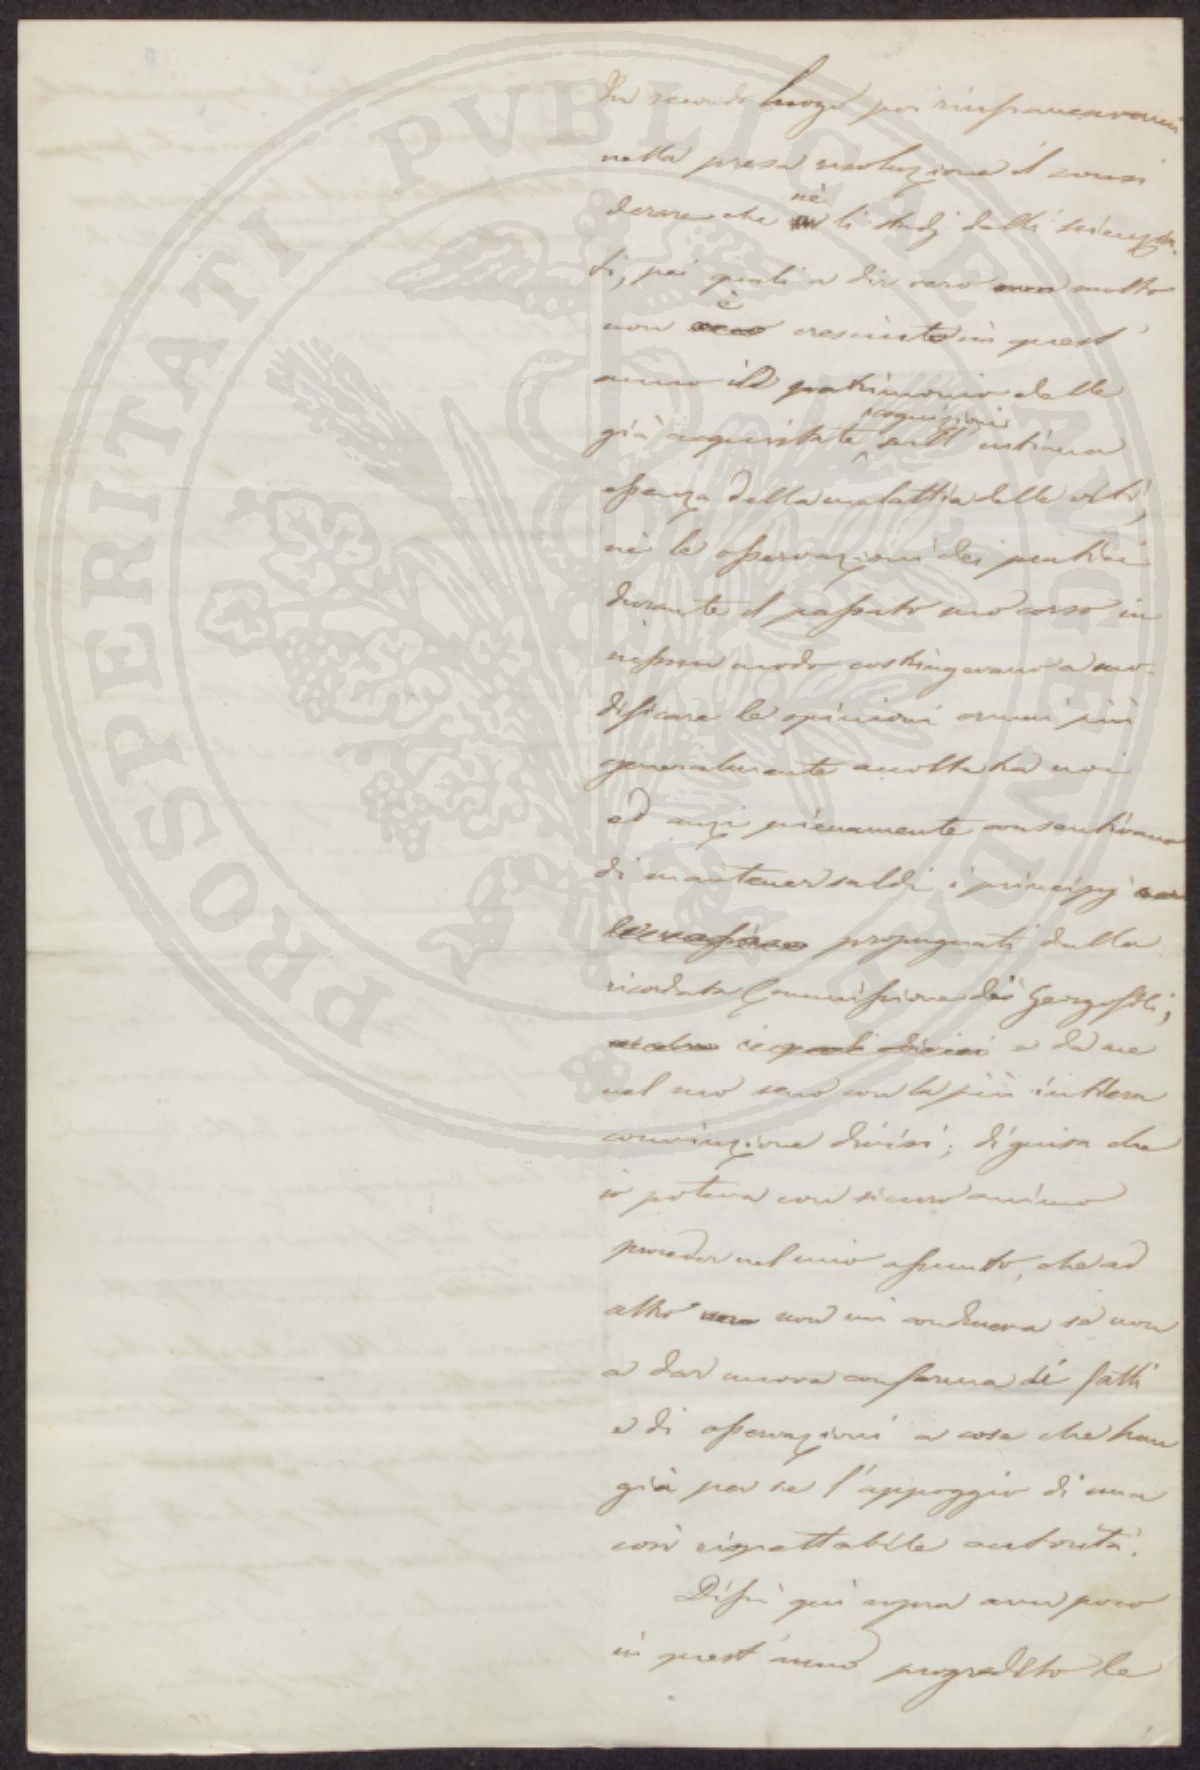 PROSPERITATI PVBLICAE AVGENDAE
In secondo luogo poi rinfrancavami
nella presa risoluzione il consi
derare che nè li studj delli scienzia-
ti, pei quali a dir vero molto
non è cresciuto in quest'
anno il patrimonio delle
già acquistate cognizioni sull' intima
essenza della malattia delle viti,
nè le osservazioni dei pratici
durante il passato suo corso in
nessun modo costringevano a mo-
dificare le opinioni ormai più
generalmente accolte tra noi
ed anzi pienamente consentivano
di mantener saldi i principj
propugnati dalla
ricordata Commissione dei Georgofili,
e da me
nel suo seno con la più intera
convinzione divisi; di guisa che
io poteva con sicuro animo
proceder nel mio assunto, che ad
altro non mi conduceva se non
a dar nuova conferma di fatti
e di osservazioni a cose che han
già per se l'appoggio di una
così rispettabile autorità.
Dissi quì sopra aver poco
in quest'anno progredito le